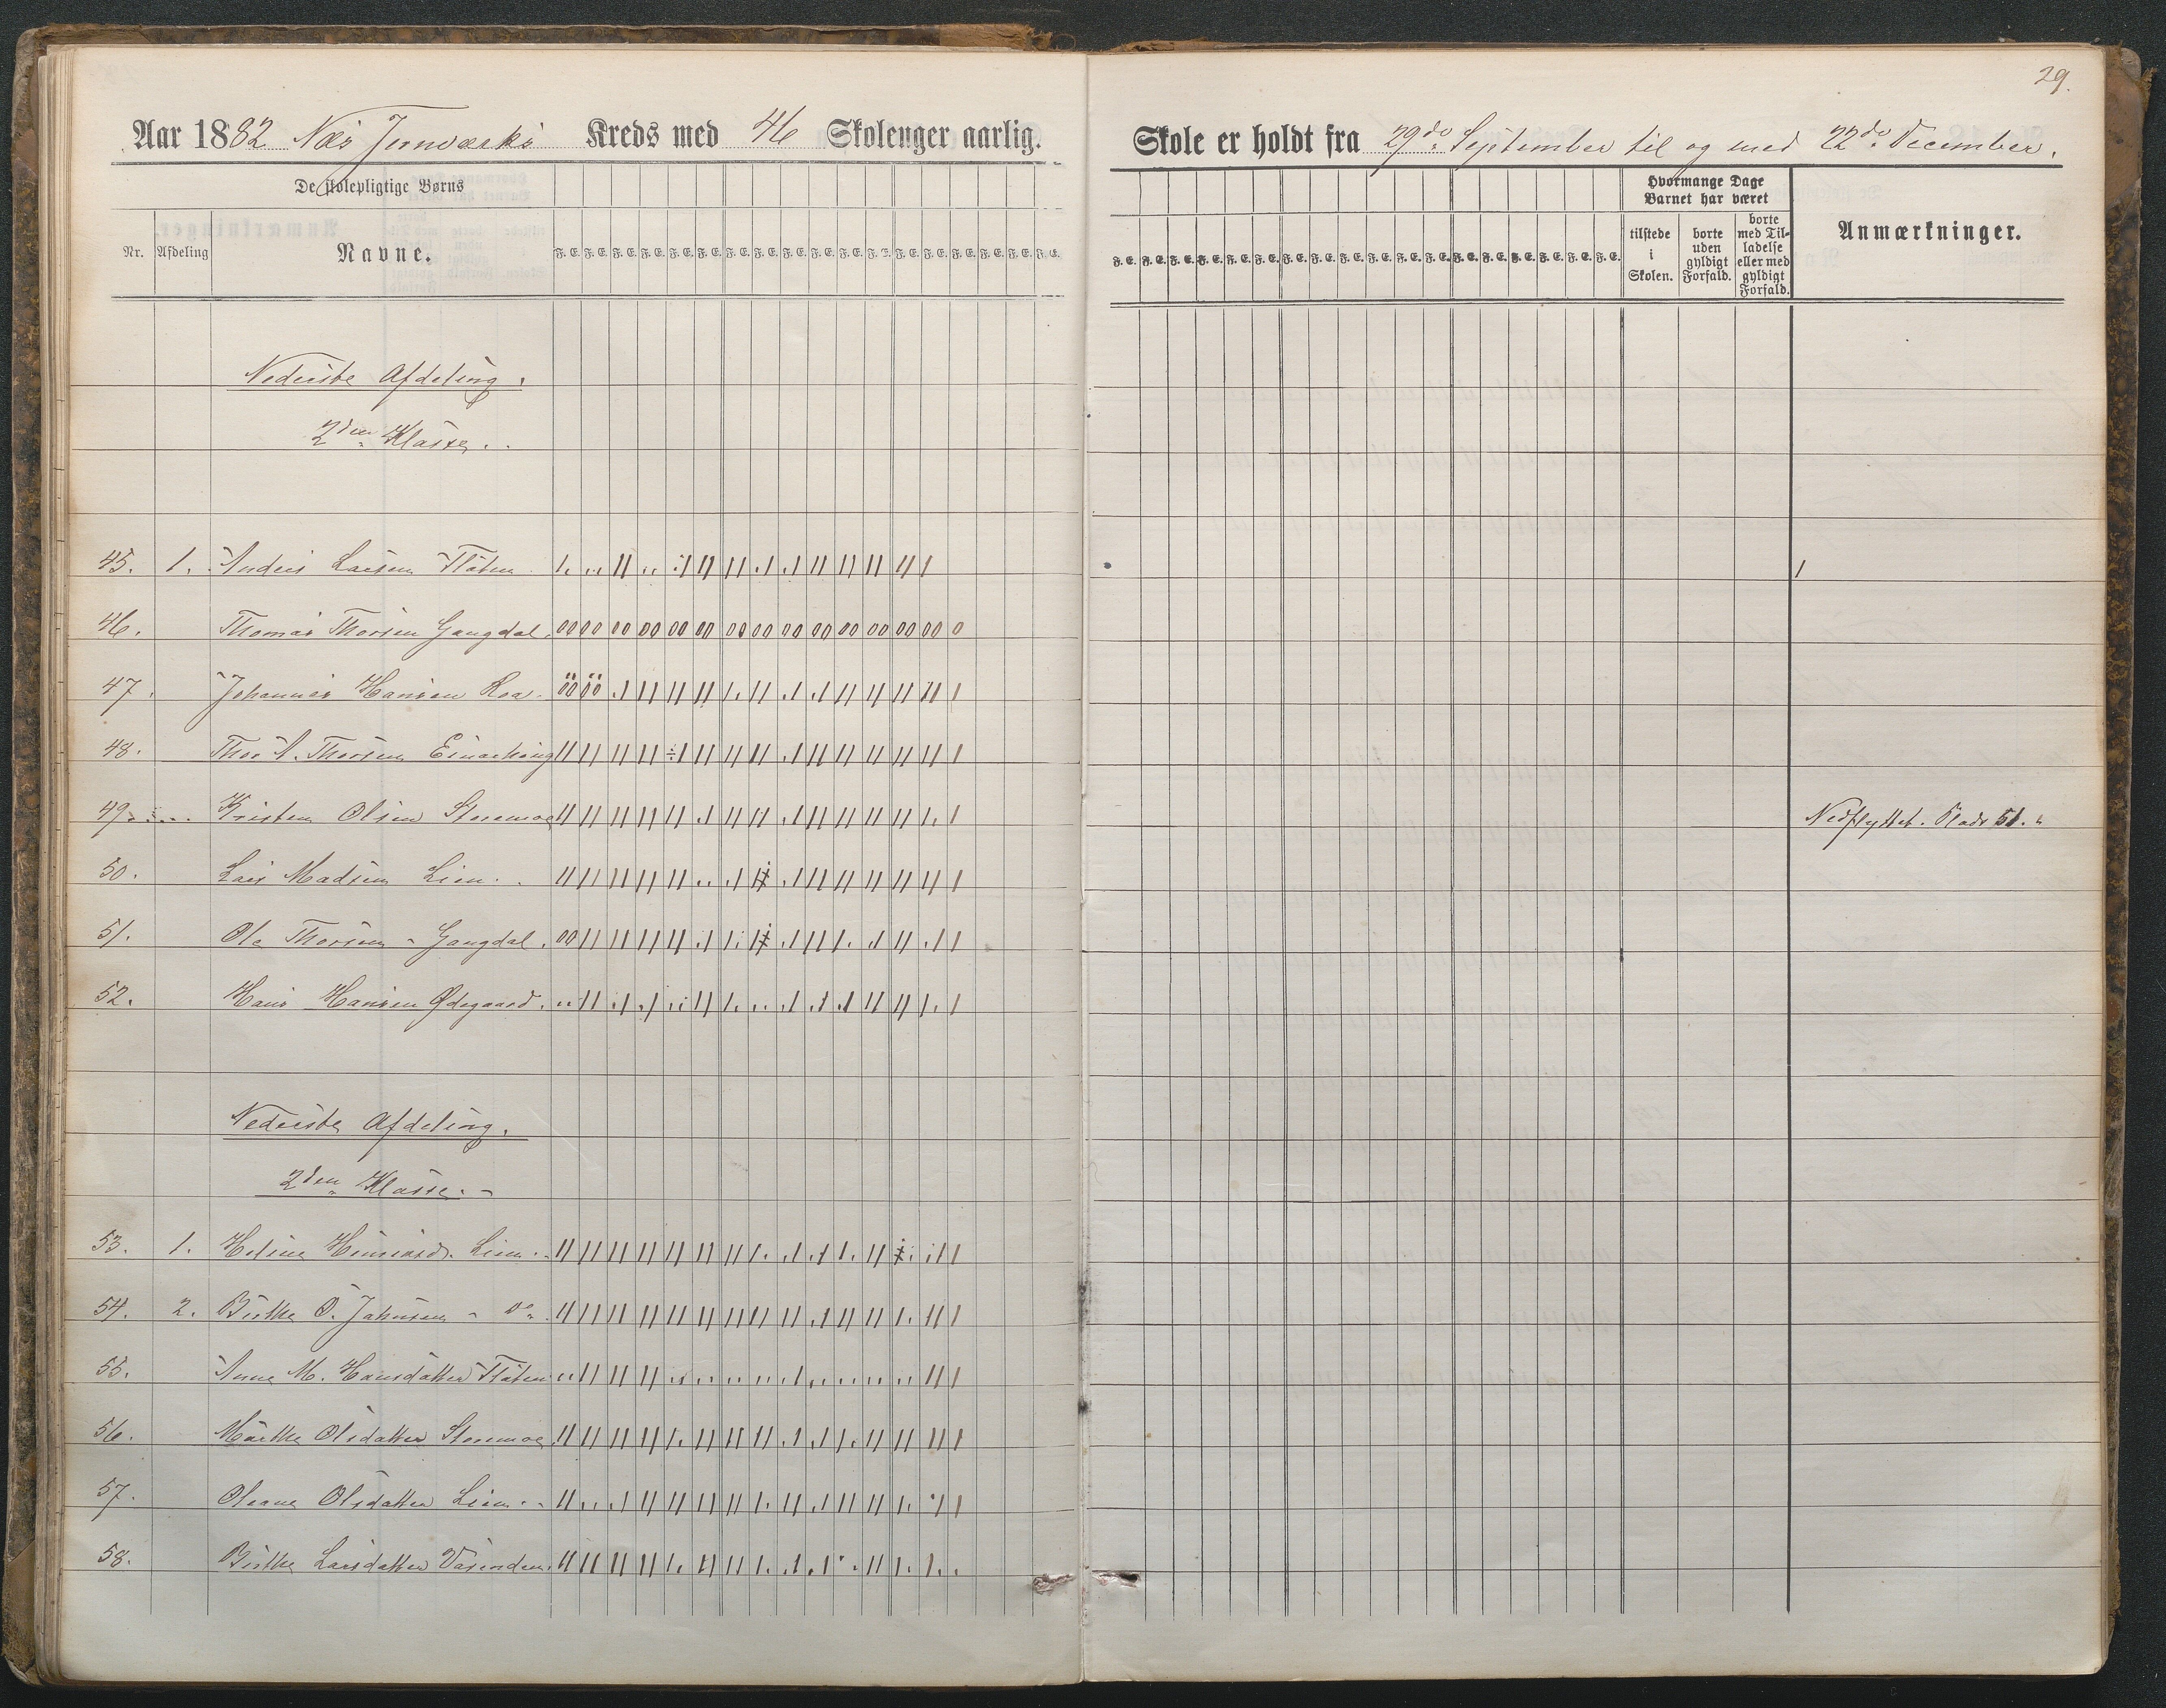 29.
Aar 1882 Næs Jernværks Kreds med 46 Skolenger aarlig.
Skole er holdt fra 29de September til og med 22de December.
De skolepligtige Børns
Hvormange Dage Barnet har været
Nr. Afdeling Navne. F. E. F. E. F. E. F. E. F. E. F. E. F. E. F. E. F. E. F. E. F. E. F. E. F. E. F. E. F. E. F. E. F. E. F. E.
tilstede i Skolen. borte uden gyldigt Forfald. borte med Tilladelse eller med gyldigt Forfald. Anmærkninger.
Nederste Afdeling.
2den Klasse.
45. 1. Anders Larsen Flaten
46. Thomas Thorsen Gangdal.
47. Johannes Hansen Roa.
48. Thor A. Thorsen
49. Kristen Olsen Stenmoe Nedflyttet. Plads 51.
50. Lars Madsen Lien.
51. Ole Thorsen - Gangdal.
52. Hans Hansen Ødegaard.
Nederste Afdeling.
2den Klasse. -
53. 1. Helene Lien.
54. 2. Birthe O. Johnsen - do
55. Anne M. Hansdatter Flaten
56. Marthe Olsdatter Stenmoe
57. Oleane Olsdatter Lien.
58. Birthe Larsdatter